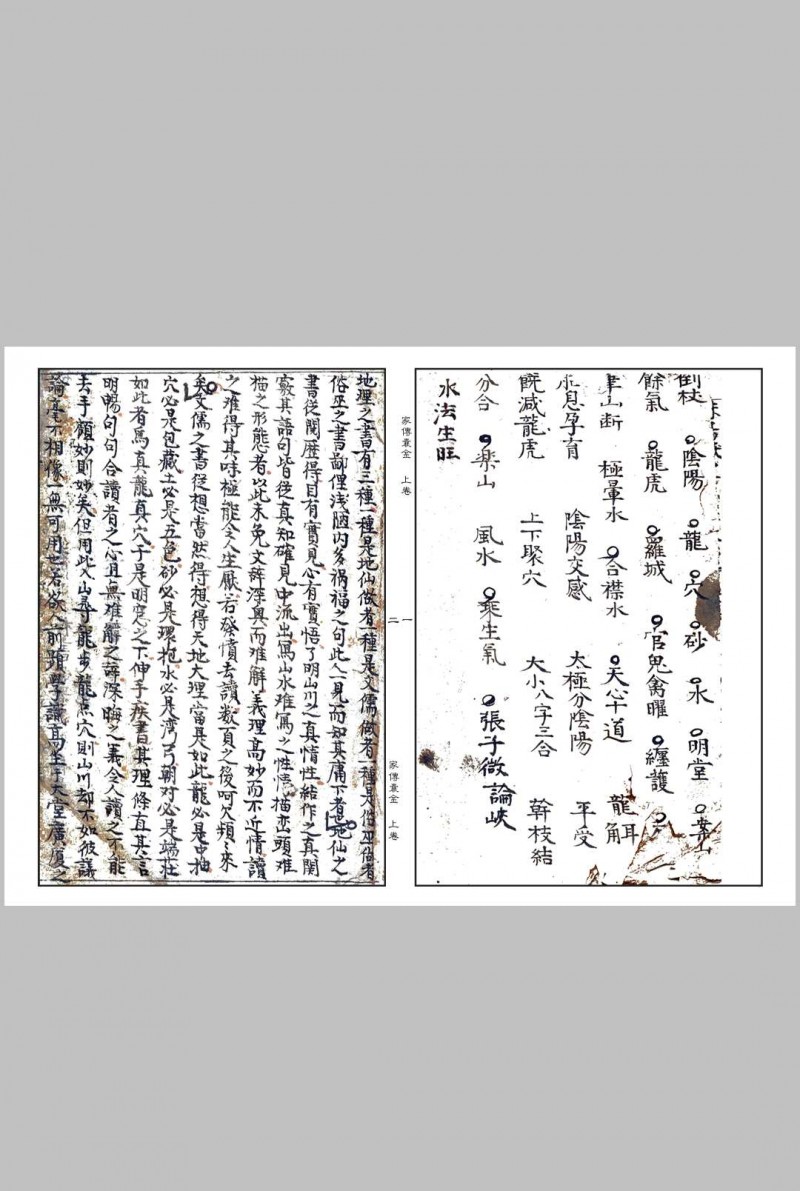 倒杖 陰陽 龍 穴 砂 水 明堂 案山
餘氣 龍虎 羅城 官鬼禽曜 纏護
山断 極暈水 合襟水 天心十道 龍耳龍角
息孕育 陰陽交感 太極分陰陽 平受
既減龍虎 上下聚穴 大小八字三合 幹枝結
分合 樂山 風水 乘生氣 張子微論峡
水法生旺
家傳囊金 上卷
一
二
家傳囊金 上卷
地理之書有三種一種是地仙做者一種是文儒做者一種是俗巫做者
俗巫之書鄙俚浅陋内多禍福之句此人一見而知其庸下者也地仙之
書從閱歷得目有實見心有實悟了明山川之真情性結作之真関
竅其語句皆從真知確見中流出写山水难写之性情描峦頭难
描之形態者以此未免文辞深奥而难解義理高妙而不近情讀
之难得其味極能令人生厭若發憤去讀数頁之後呵欠頻々来
矣文儒之書從想當然得想得天地大理當是如此龍必是中抽
穴必是包藏土必是五色砂必是環抱水必是湾弓朝对必是端庄
如此者為真龍真穴于是明窓之下伸手疾書其理條直其言
明暢句句合讀者之心且無难解之辞深晦之義令人讀之不能
去手顧妙則妙矣但用此入山尋龍步龍点穴則山川却不如彼議
論毫不相像一無可用也若欲人前顕學識高坐于大堂廣廈之